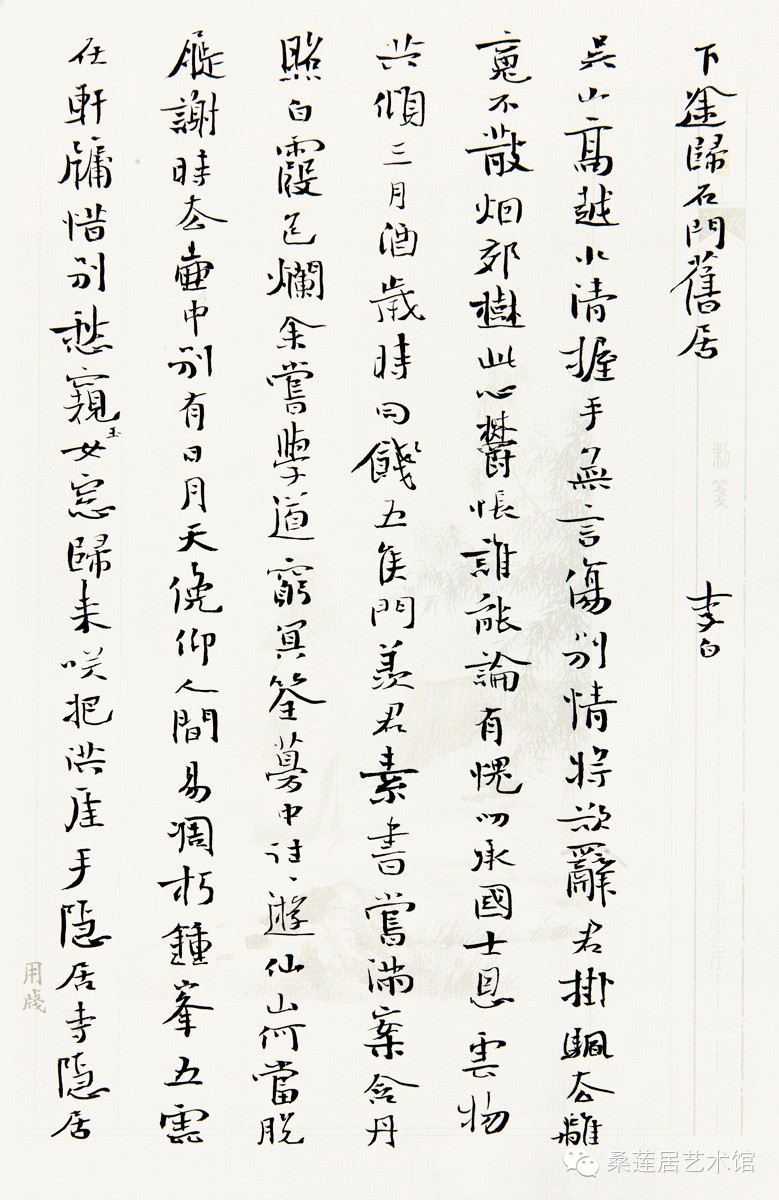 下途歸石門舊居 李白
吳山高越水清握手無言傷別情將欲辭君掛帆去離
魂不散烟郊樹此心鬱悵誰能論有愧叨承國士恩雲物
共傾三月酒歲時同餞五侯門羨君素書嘗滿案含丹
照白霞色爛余嘗學道窮冥筌夢中往往遊仙山何當脫
屣謝時去壺中別有日月天俛仰人間易凋朽鍾峯五雲
在軒牖惜別愁窺玉女窓歸來咲把洪崖手隱居寺隱居
用牋
桑莲居艺术馆